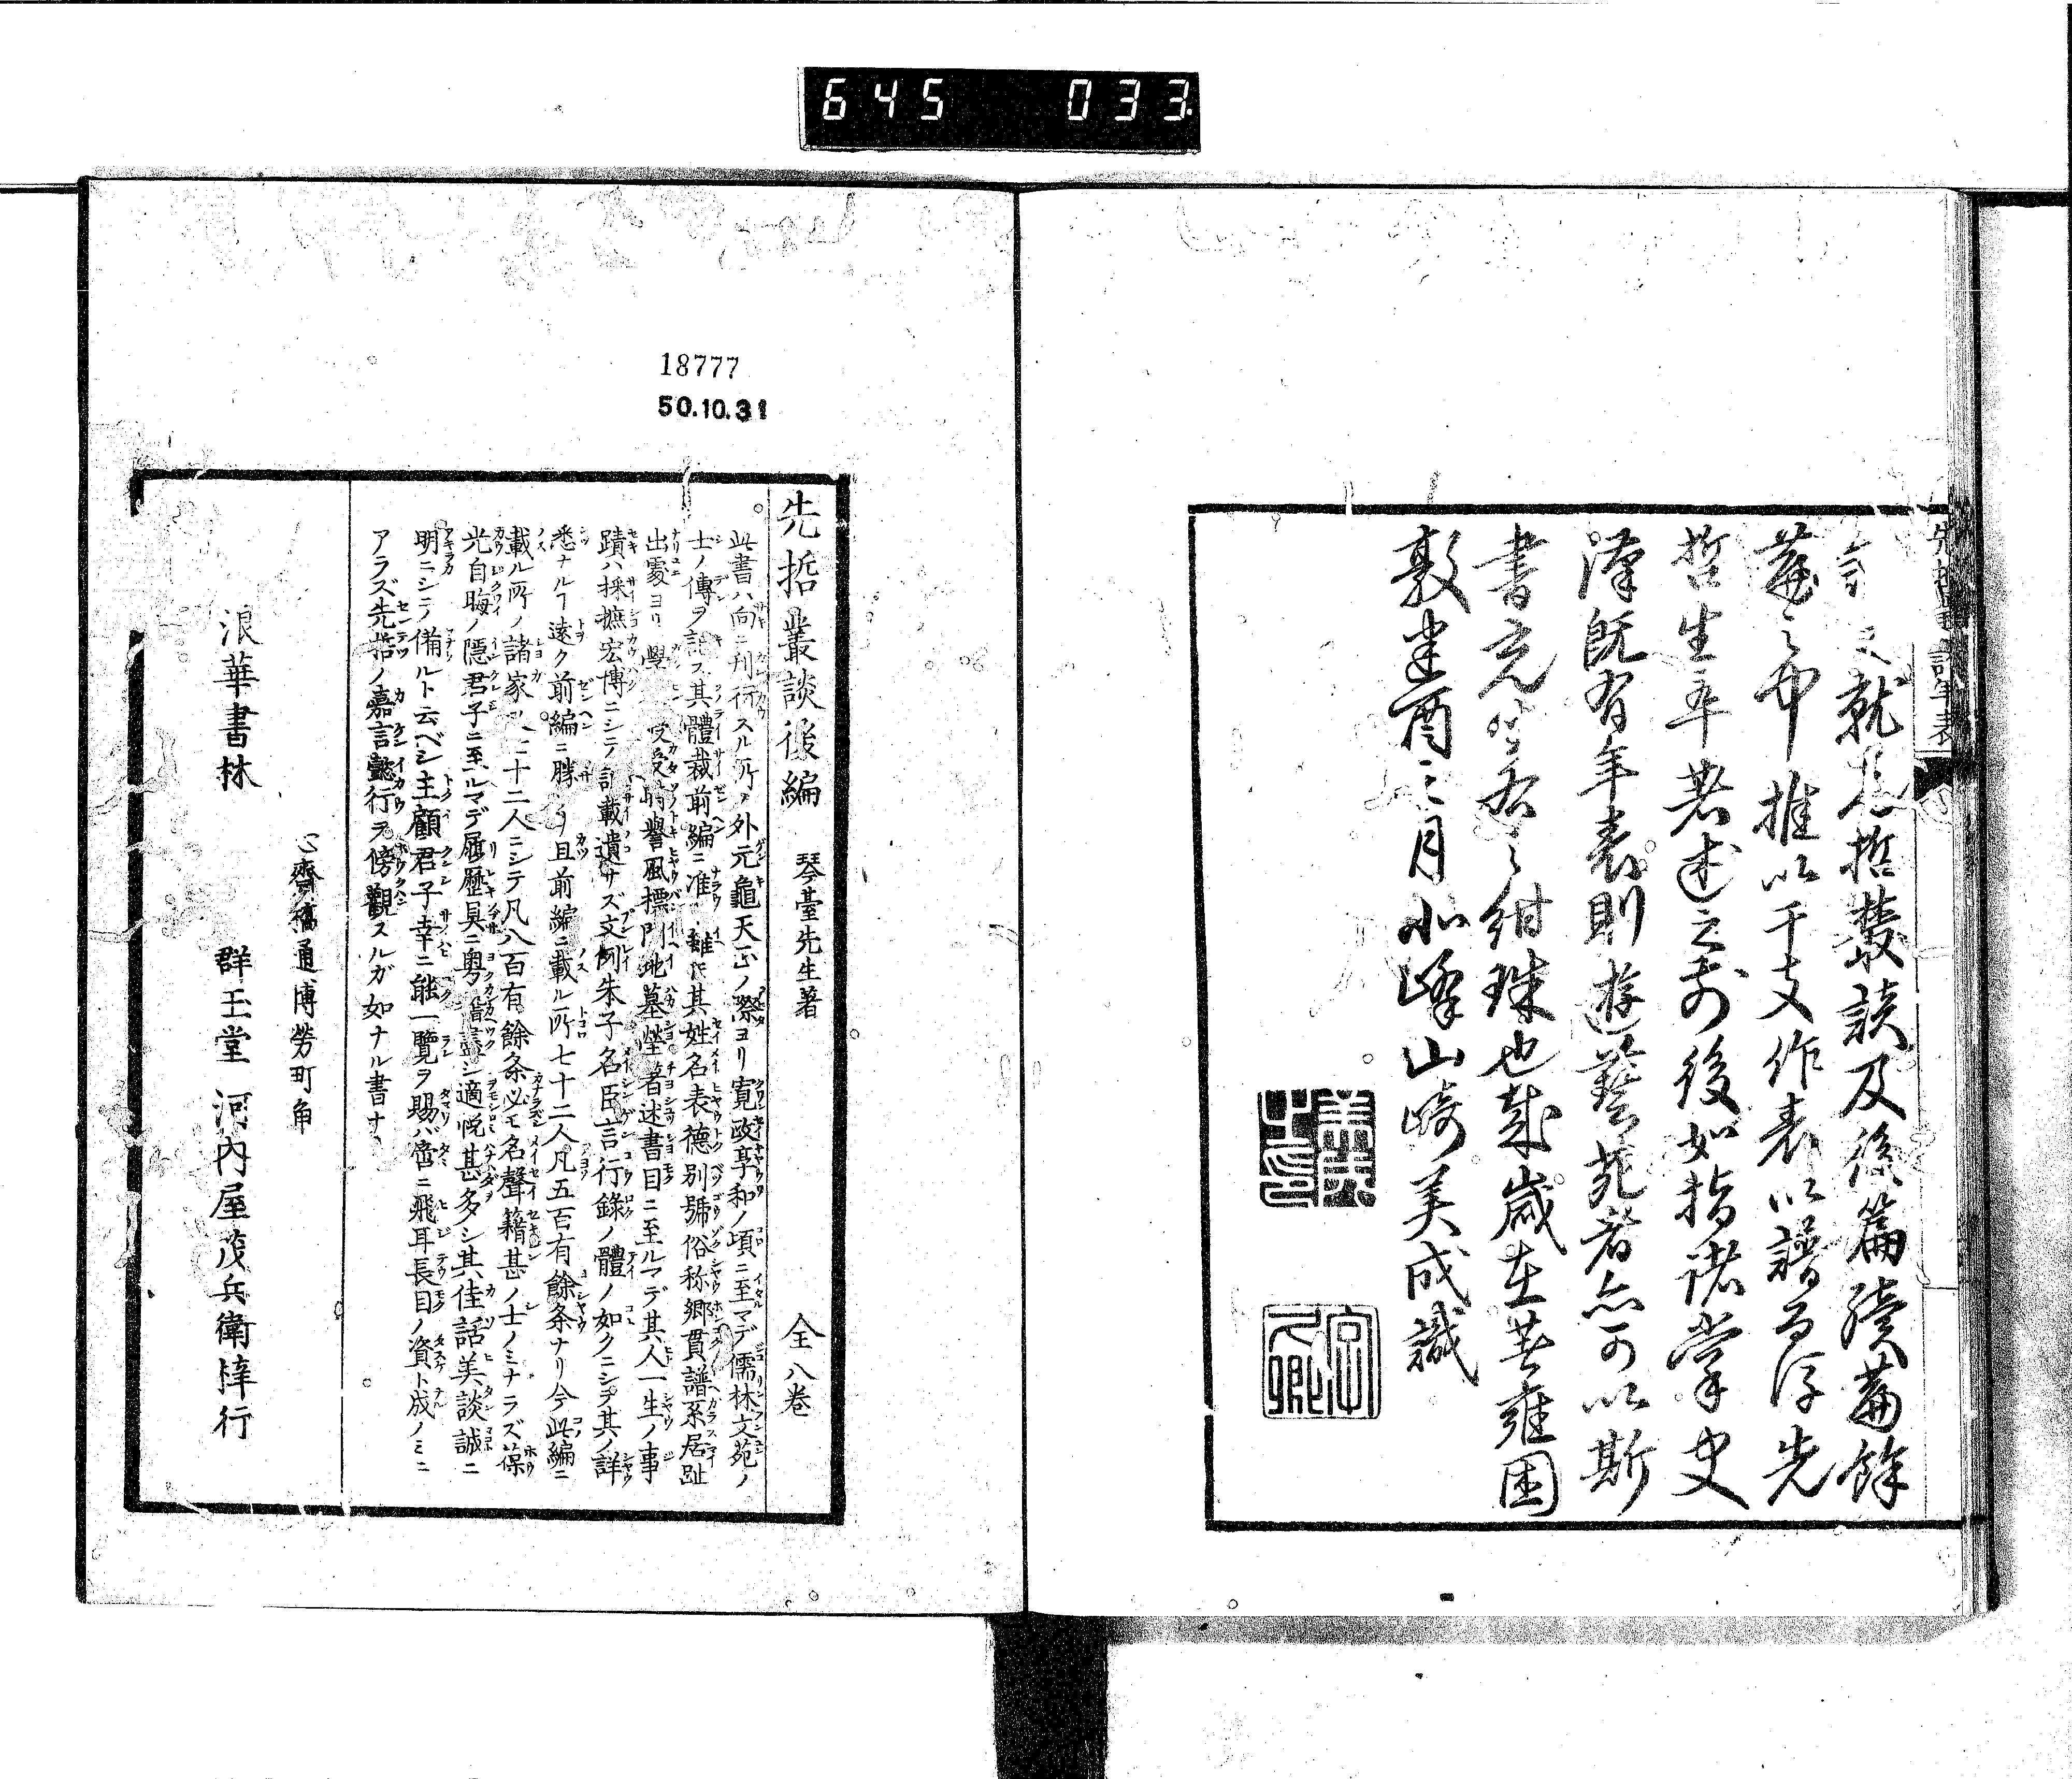 645 033
先哲叢談年表
就先哲叢談及後篇續篇餘
篇之中推以干支作表以譜焉於先
哲生卒著述之前後如指諸掌史
漢既有年表則遊藝苑者亦可以斯
書充
紺珠也哉歲在著雍困
敦建酉之月北峰山崎美成識
18777
50.10.31
先哲叢談後編 琴臺先生著 全八卷
此書ハ向ニ刊行スル所ノ外元龜天正ノ際ヨリ寛政享和ノ頃ニ至マデ儒林文苑ノ
士ノ傳ヲ記ス其體裁前編ニ准
其姓名表德別號俗称鄉貫譜系居趾
出處ヨリ學
時譽風標門地墓塋著述書目ニ至ルマデ其人一生ノ事
蹟ハ採摭宏博ニシテ記載遺サズ文例朱子名臣言行錄ノ體ノ如クニシテ其ノ詳
悉ナルヿ遠ク前編ニ勝
リ且前編ニ載ル所七十二人凡五百有餘条ナリ今此編ニ
載ル所ノ諸家
二十二人ニシテ凡八百有餘条必モ名聲籍甚ノ士ノミナラズ葆
光自晦ノ隱君子ニ至ルマデ履歷具ニ
適悦甚多シ其佳話美談誠ニ
明ニシテ備ルト云ベシ主顧君子幸ニ能一覽ヲ賜バ啻ニ飛耳長目ノ資ト成ノミニ
アラズ先哲ノ嘉言懿行ヲ傍觀スルガ如ナル書ナ
心齋橋通博勞町角
浪華書林 群玉堂 河内屋茂兵衛梓行